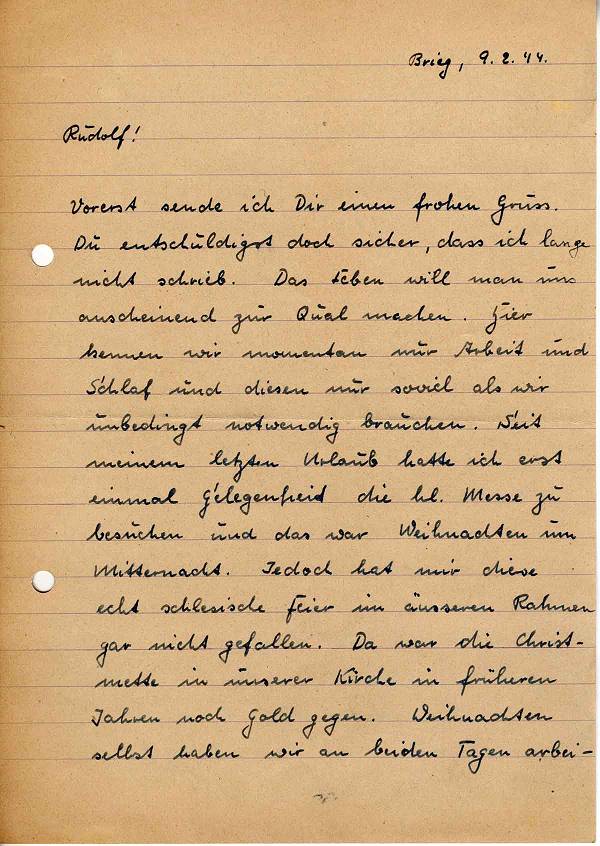 Brieg, 9. 2. 44.
Rudolf!
Vorerst sende ich Dir einen frohen Gruss.
Du entschuldigst doch sicher, dass ich lange
nicht schrieb. Das Leben will man uns
anscheinend zur Qual machen. Hier
kennen wir momentan nur Arbeit und
Schlaf und diesen nur soviel als wir
unbedingt notwendig brauchen. Seit
meinem letzten Urlaub hatte ich erst
einmal Gelegenheid die hl. Messe zu
besuchen und das war Weihnachten um
Mitternacht. Jedoch hat mir diese
echt schlesische Feier im äusseren Rahmen
gar nicht gefallen. Da war die Christ-
mette in unserer Kirche in früheren
Jahren noch Gold gegen. Weihnachten
selbst haben wir an beiden Tagen arbei-